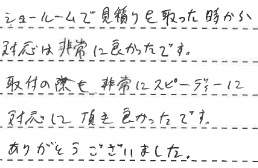 ショールームで見積りを取った時から
対応は非常に良かったです。
取付の際も非常にスピーディーに
対応して頂き良かったです。
ありがとうございました。